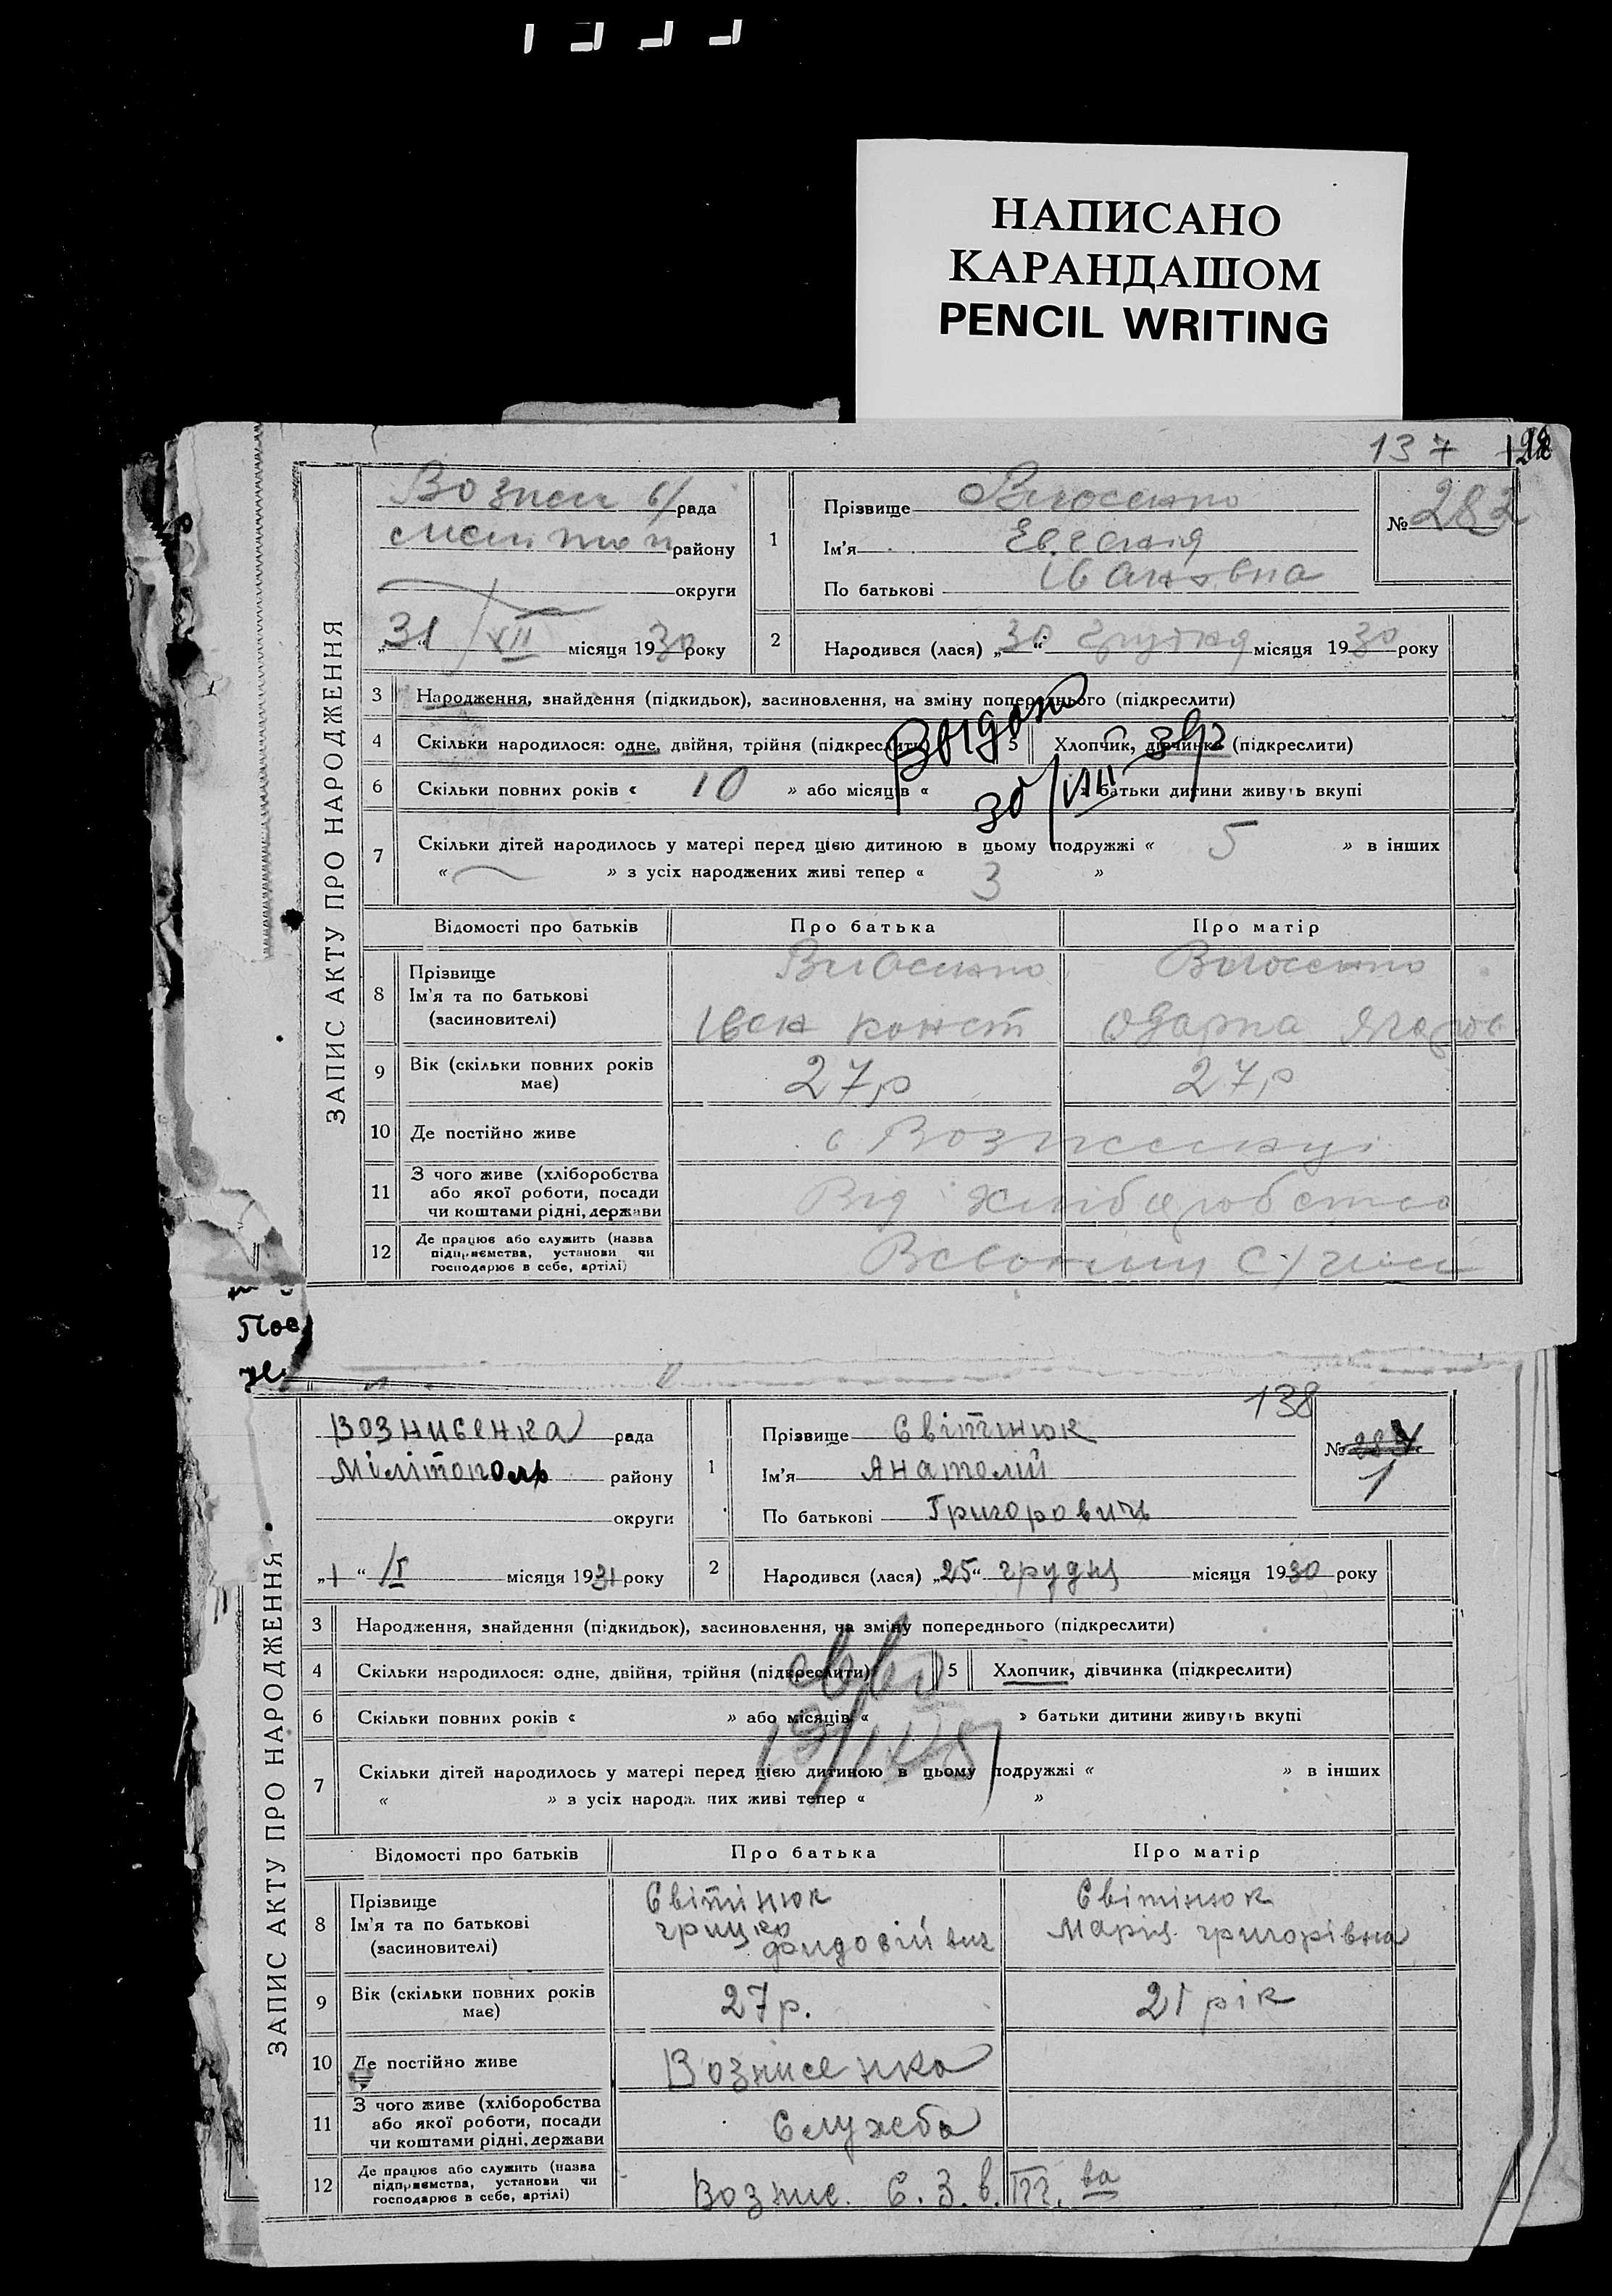 НАПИСАНО
КАРАНДАШОМ
PENCIL WRITING
137
ЗАПИС АКТУ ПРО НАРОДЖЕННЯ
Вознес с/рада
району
округи
„31“ XII місяця 1930 року
1
Прізвище
Ім'я Евгенія
По батькові Івановна
№ 282
2
Народився (лася) „30“ грудня місяця 1930 року
3 Народження, знайдення (підкидьок), засиновлення, на зміну попереднього (підкреслити)
4 Скільки народилося: одне, двійня, трійня (підкреслити)
5 Хлопчик, дівчинка (підкреслити)
6 Скільки повних років « 10 » або місяців « » батьки дитини живуть вкупі
7 Скільки дітей народилось у матері перед цією дитиною в цьому подружжі « 5 » в інших
« — » з усіх народжених живі тепер « 3 »
Відомості про батьків Про батька Про матір
8 Прізвище
Ім'я та по батькові Іван Конст Одарка
(засновителі)
9 Вік (скільки повних років має) 27 р 27 р
10 Де постійно живе с Вознесенці
11 З чого живе (хліборобства або якої роботи, посади чи коштами рідні, держави Від хліборобства
12 Де працює або служить (назва підприємства, установи чи господарює в себе, артілі)
138
ЗАПИС АКТУ ПРО НАРОДЖЕННЯ
Вознисенка рада
Мілітополь району
округи
„1“ І місяця 1931 року
1
Прізвище Світинюк
Ім'я Анатолій
По батькові Григоровичь
№ 1
2
Народився (лася) „25“ грудня місяця 1930 року
3 Народження, знайдення (підкидьок), засиновлення, на зміну попереднього (підкреслити)
4 Скільки народилося: одне, двійня, трійня (підкреслити)
5 Хлопчик, дівчинка (підкреслити)
6 Скільки повних років « » або місяців « » батьки дитини живуть вкупі
7 Скільки дітей народилось у матері перед цією дитиною в цьому подружжі « » в інших
« » з усіх народжених живі тепер « »
Відомості про батьків Про батька Про матір
8 Прізвище Світинюк Світинюк
Ім'я та по батькові Грицко Марія Григорівна
(засиновителі)
9 Вік (скільки повних років має) 27 р. 21 рік
10 Де постійно живе Вознисенка
11 З чого живе (хліборобства або якої роботи, посади чи коштами рідні, держави Служба
12 Де працює або служить (назва підприємства, установи чи господарює в себе, артілі) Вознис.